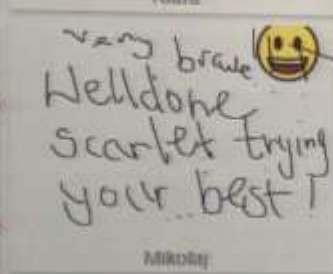 very brave
Welldone
scarlet trying
your best!
Mikolaj